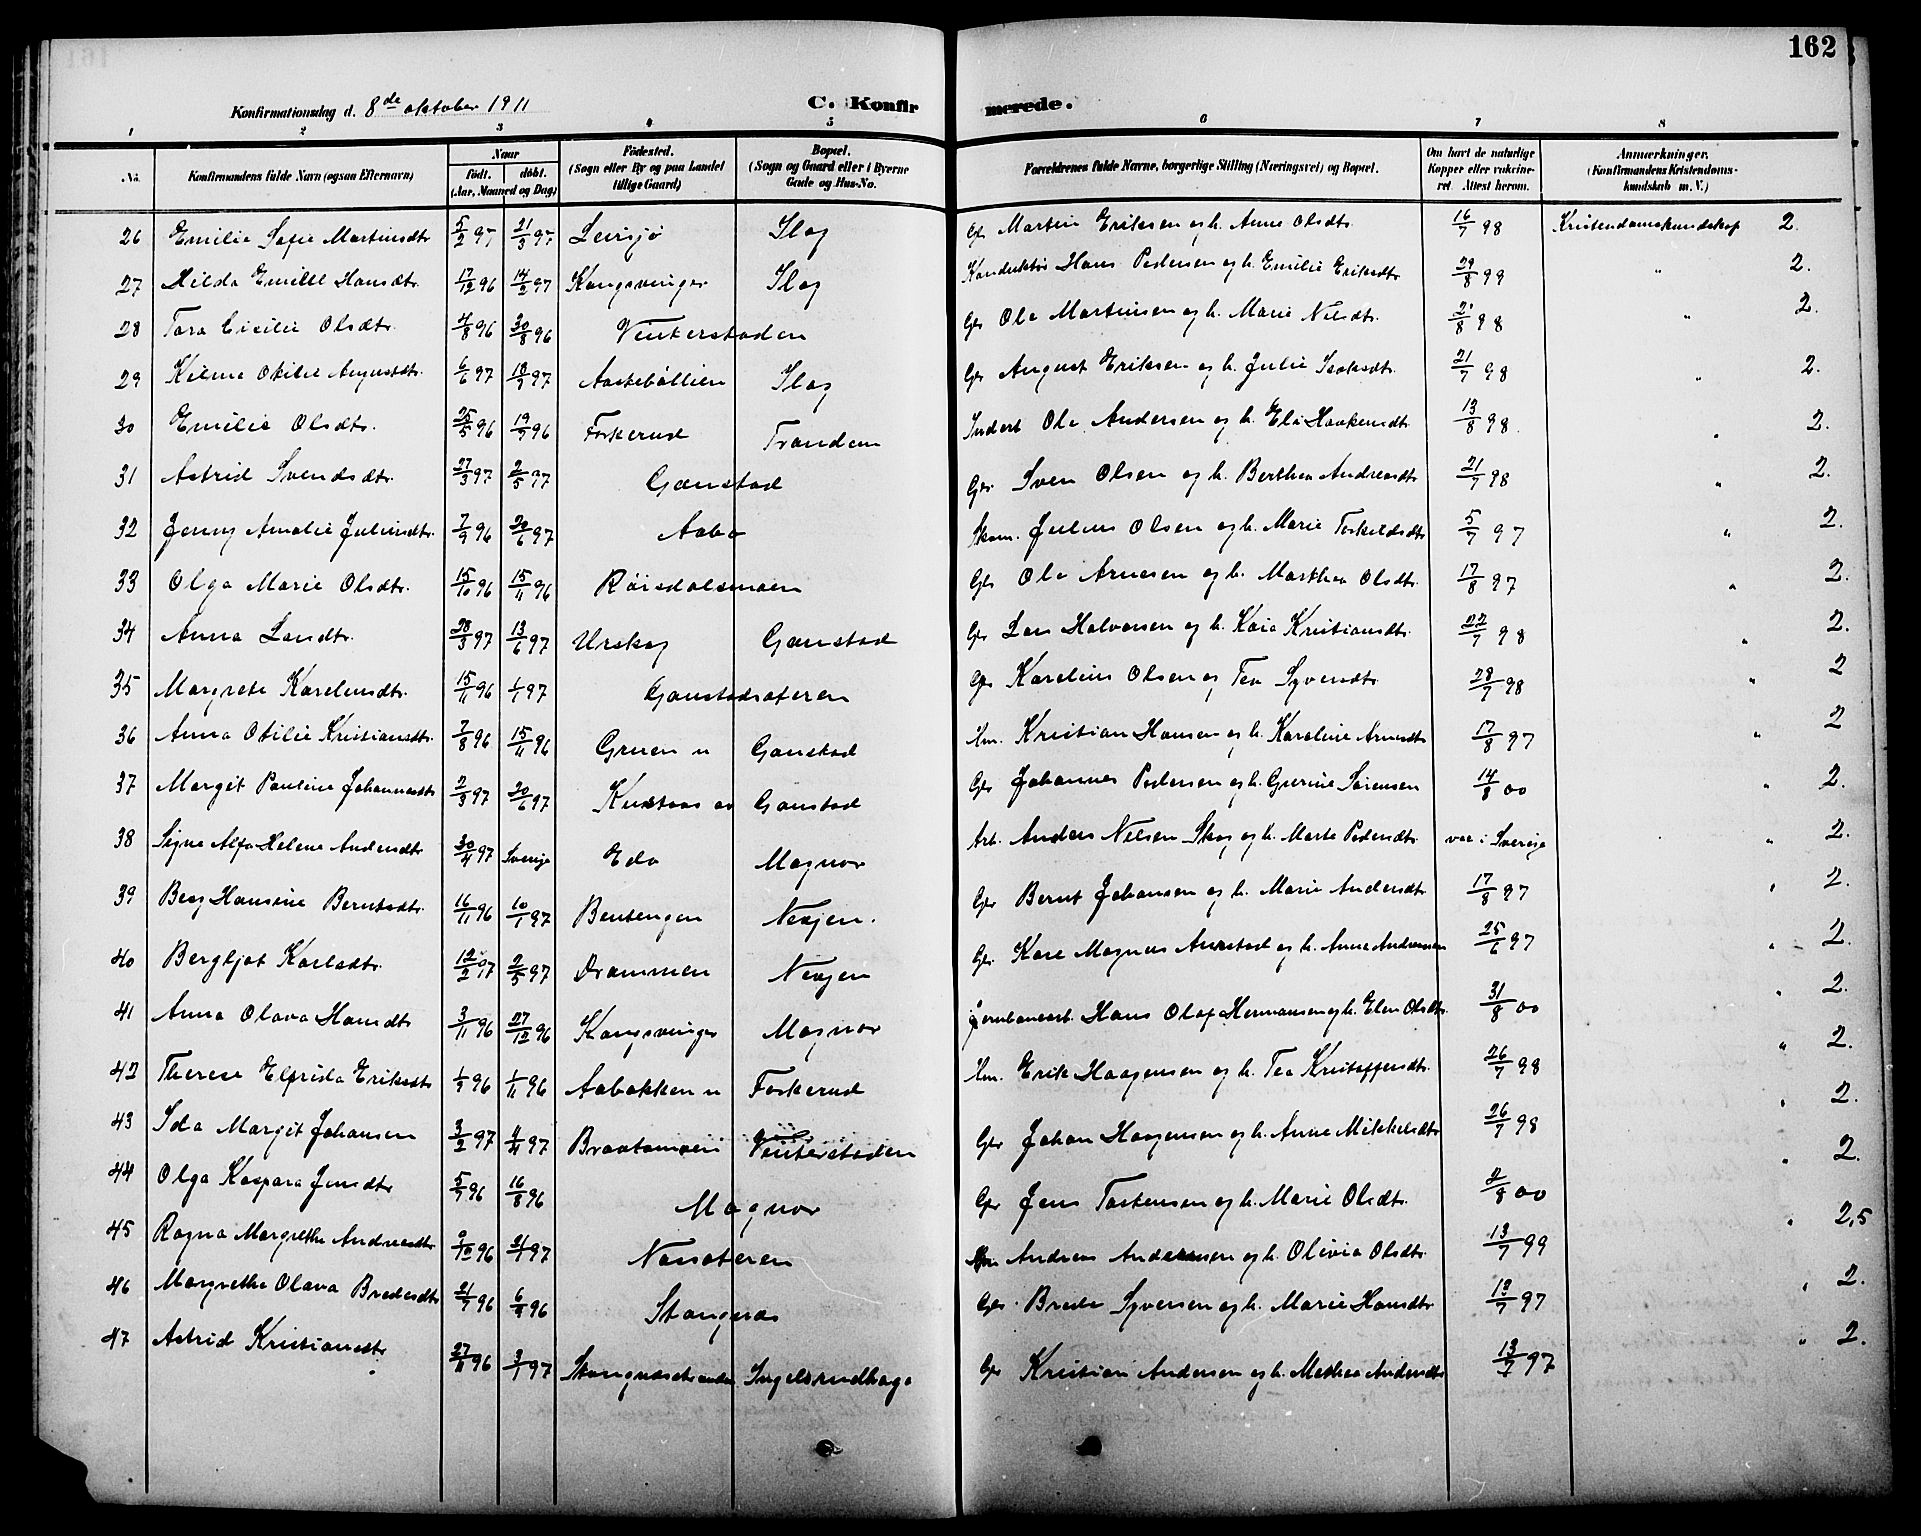 162
Konfirmationsdag d. 8de oktober 1911
C. Konfirmerede.
1 2 3 4 5 6 7 8
No. Konfirmandens fulde Navn (ogsaa Efternavn) Naar født. døbt. (Aar, Maaned og Dag) Fødested. (Sogn eller By og paa Landet tillige Gaard) Bopæl. (Sogn og Gaard eller i Byerne Gade og Hus-No. Forældrenes fulde Navne, borgerlige Stilling (Næringsvei) og Bopæl. Om havt de naturlige Kopper eller vakcineret. Attest herom. Anmærkninger. (Konfirmandens Kristendomskundskab m. V.)
26 Emilie Sofie Martinsdtr. 5/2 97 21/3 97 Leirsjø Skog Gbr Martin Eriksen og h. Anne Olsdtr. 16/7 98 Kristendomskundskap 2.
27 Hilda Emilie Hansdtr. 17/12 96 14/2 97 Kongsvinger Skog Konduktør Hans Pedersen og h. Emilie Eriksdtr 29/8 99 " 2.
28 Tora Cicilie Olsdtr. 4/8 96 30/8 96 Vinterstaden Gbr Ole Martinsen og h. Marie Nilsdtr. 2/8 98 " 2.
29 Otilie Augustdtr. 6/6 97 97 Skog Gbr August Eriksen og h. Julie Isaksdtr. 21/7 98 " 2.
30 Emilie Olsdtr. 25/5 96 19/7 96 Foskerud Trandem Inderst Ole Andersen og h. Eli Haakensdtr 13/8 98. " 2.
31 Astrid Svendsdtr. 27/3 97 2/5 97 Gaustad Gbr. Sven Olsen og h. Berthea Andreasdtr 21/7 98 " 2.
32 Jenny Amalie Juliusdtr. 7/9 96 20/6 97 Aabo Skom. Julius Olsen og h. Marie Torkildsdtr 5/7 97 " 2.
33 Olga Marie Olsdtr. 15/10 96 15/11 96 Røisdalsmoen Gbr Ole Arnesen og h. Marthea Olsdtr. 17/8 97 " 2.
34 Anna Larsdtr. 28/3 97 13/6 97 Urskog Gaustad Gbr Lars Halvorsen og h. Kaia Kristiansdtr. 22/7 98 " 2.
35 Margrete Karelinsdtr. 15/11 96 1/1 97 Gaustadsæteren Gbr Karelius Olsen og Tea Syversdtr 28/7 98 " 2
36 Anna Otilie Kristiansdtr. 7/8 96 15/11 96 Gruen u Gaustad Hm. Kristian Hansen og h. Karoline Arnesdtr 17/8 97 " 2
37 Margit Pauline Johannesdtr 2/3 97 20/6 97 Gaustad Gbr Johannes Pedersen og h. Gurine Sørensen 14/8 00 " 2.
38 Signe Alfa Helene Andersdtr 30/4 97 Sverige Eda Magnor Arb. Anders Nilsen Skog og h. Marte Pedersdtr. var i Sverige " 2.
39 Hansine Berntsdtr. 16/11 96 10/1 97 Bentengen Nexjen. Gbr Bernt Johansen og h. Marie Andersdtr 17/8 97 " 2.
40 Bergljot Karlsdtr. 12/2 97 2/5 97 Drammen Nexjen Gbr. Magnus og h. Anna Andersen 25/6 97 " 2.
41 Anna Olava Hansdtr 3/11 96 27/12 96 Kongsvinger Magnor Jernbanearb. Hans Olaf Hermansen og h. Elen Olsdtr. 31/8 00 " 2.
42 Therese Elfrida Eriksdtr 1/9 96 1/11 96 Aabakken u Foskerud Hm. Erik Haagensen og h. Tea Kristoffersdtr. 26/7 98 " 2.
43 Ida Margit Johansen 3/2 97 4/4 97 Braatamoen Vinterstaden Gbr Johan Haagensen og h. Anne Mikkelsdtr 26/7 98 " 2.
44 Olga Kaspara Jensdtr 5/7 96 16/8 96 Magnor Gbr Jens Tostensen og h. Marie Olsdtr. 2/8 00 " 2.
45 Ragna Margrethe Andreasdtr 9/12 96 97 Andreas Andersen og h. Olivia Olsdtr. 13/7 99 " 2,5
46 Margrethe Olava Bredesdtr 21/7 96 6/9 96 Stangnæs Gbr. Brede Syversen og h. Marie Hansdtr 12/7 97 " 2.
47 Astrid Kristiansdtr 27/11 96 3/1 97 Gbr Kristian Andersen og h. Mathea Andersdtr 13/7 97 " 2.